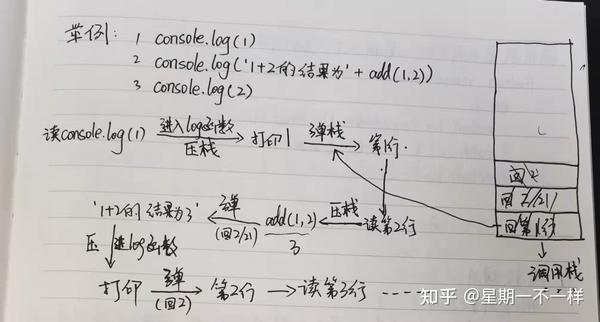 举例: 1 console.log(1)
2 console.log('1+2的结果为' + add(1,2))
3 console.log(2)
读console.log(1) 进入log函数 压栈 打印1 弹栈 第1行.
回2
回2/21
回第1行
调用栈
'1+2的结果为3' 弹 (回2/21) add(1,2) 3 压栈 读第2行
压 进log函数
打印 弹 (回2) 第2行 读第3行 ------
知乎 @星期一不一样